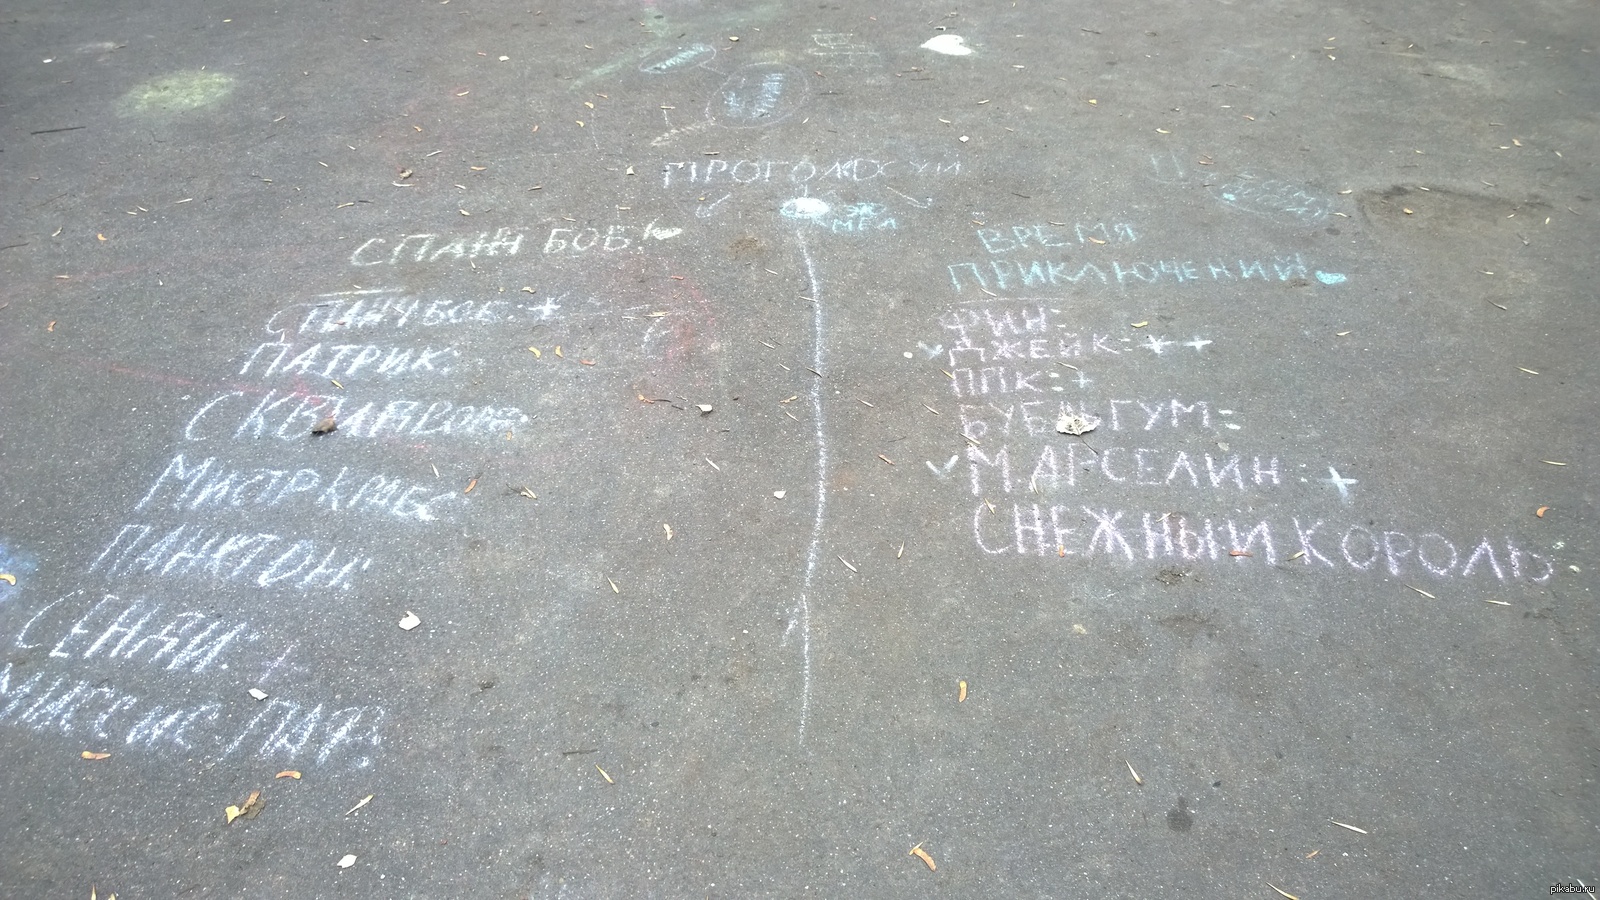 ПРОГОЛОСУЙ
МЕЛ
СПАНЧ БОБ!
СПАНЧБОБ: +
ПАТРИК:
СКВИТВОРТ
МИСТР КРАБС
ПАНКТОН:
СЕНДИ: +
МИССИС ПАФ:
ВРЕМЯ
ПРИКЛЮЧЕНИЙ!
ФИН:
✓ ДЖЕЙК: + +
ППК: +
БУБЛЬГУМ:
✓ МАРСЕЛИН: +
СНЕЖНЫЙ КОРОЛЬ:
pikabu.ru